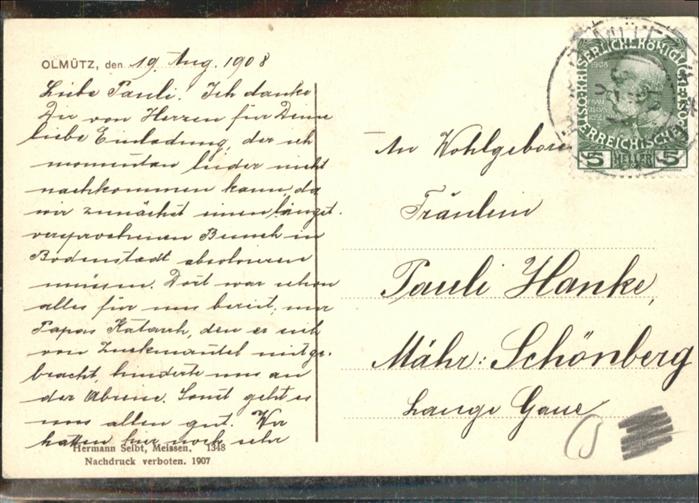 OLMÜTZ, den 19. Aug. 1908
Liebe Pauli! Ich danke
Dir von Herzen für Deine
liebe Einladung, der ich
momentan leider nicht
nachkommen kann, da
wir zunächst einen längst
versprochenen Besuch in
Bodenstadt absolvieren
müssen. Dort war schon
alles für uns bereit, nur
Papas Katarrh, den er sich
von Zuckmantel mitge-
bracht, hinderte uns an
der Abreise. Sonst geht es
uns allen gut. Wir
hatten hier noch sehr
Hermann Seibt, Meissen. 1348
Nachdruck verboten. 1907
An Wohlgeboren
Fräulein
Pauli Hanke,
Mähr: Schönberg
Lange Gasse
1908
5 HELLER 5